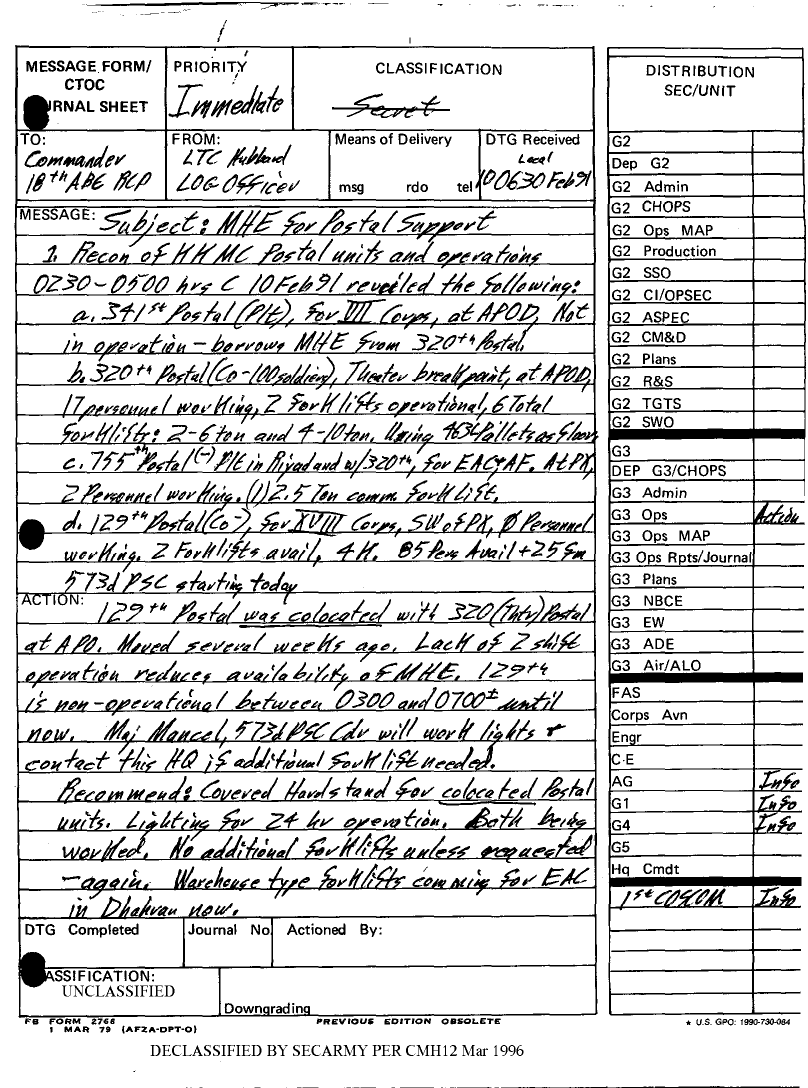 MESSAGE FORM/
CTOC
RNAL SHEET
PRIORITY
Immediate
CLASSIFICATION
Secret
TO:
Commander
18th ABE RCP
FROM:
LTC Hubbard
LOG Officer
Means of Delivery
msg rdo tel
DTG Received
Local
100630 Feb 91
MESSAGE: Subject: MHE for Postal Support
1. Recon of KKMC Postal units and operations
0230-0500 hrs C 10 Feb 91 reveiled the following:
a. 341st Postal (Plt), for VII Corps, at APOD, Not
in operation - borrows MHE from 320th Postal.
b. 320th Postal (Co-100 soldiers), Theater break point, at APOD,
17 personnel working, 2 forklifts operational, 6 Total
forklifts: 2-6 ton and 4-10 ton. Using 463L Pallets as floor
c. 755th Postal (-) Plt in Riyad and w/320th, for EAC & AF. At PX,
2 Personnel working. (1) 2.5 Ton comm. forklift.
d. 129th Postal (Co-), for XVIII Corps, SW of PX, Ø Personnel
working. 2 Forklifts avail, 4K. 85 Pers Avail + 25 fm
573d PSC starting today
ACTION: 129th Postal was colocated with 320 (Thtr) Postal
at APO. Moved several weeks ago. Lack of 2 shift
operation reduces availability of MHE. 129th
is non-operational between 0300 and 0700± until
now. Maj Mancel, 573d PSC Cdr will work lights &
contact this HQ if additional forklift needed.
Recommend: Covered Hardstand for colocated Postal
units. Lighting for 24 hr operation. Both being
worked. No additional forklifts unless requested
- again. Warehouse type forklifts comming for EAC
in Dhahran now.
DTG Completed
Journal No
Actioned By:
ASSIFICATION:
UNCLASSIFIED
Downgrading
FB FORM 2766
1 MAR 79 (AFZA-DPT-O)
PREVIOUS EDITION OBSOLETE
DISTRIBUTION
SEC/UNIT
G2
Dep G2
G2 Admin
G2 CHOPS
G2 Ops MAP
G2 Production
G2 SSO
G2 CI/OPSEC
G2 ASPEC
G2 CM&D
G2 Plans
G2 R&S
G2 TGTS
G2 SWO
G3
DEP G3/CHOPS
G3 Admin
G3 Ops Action
G3 Ops MAP
G3 Ops Rpts/Journal
G3 Plans
G3 NBCE
G3 EW
G3 ADE
G3 Air/ALO
FAS
Corps Avn
Engr
C-E
AG Info
G1 Info
G4 Info
G5
Hq Cmdt
1st COSCOM Info
★ U.S. GPO: 1990-730-084
DECLASSIFIED BY SECARMY PER CMH12 Mar 1996